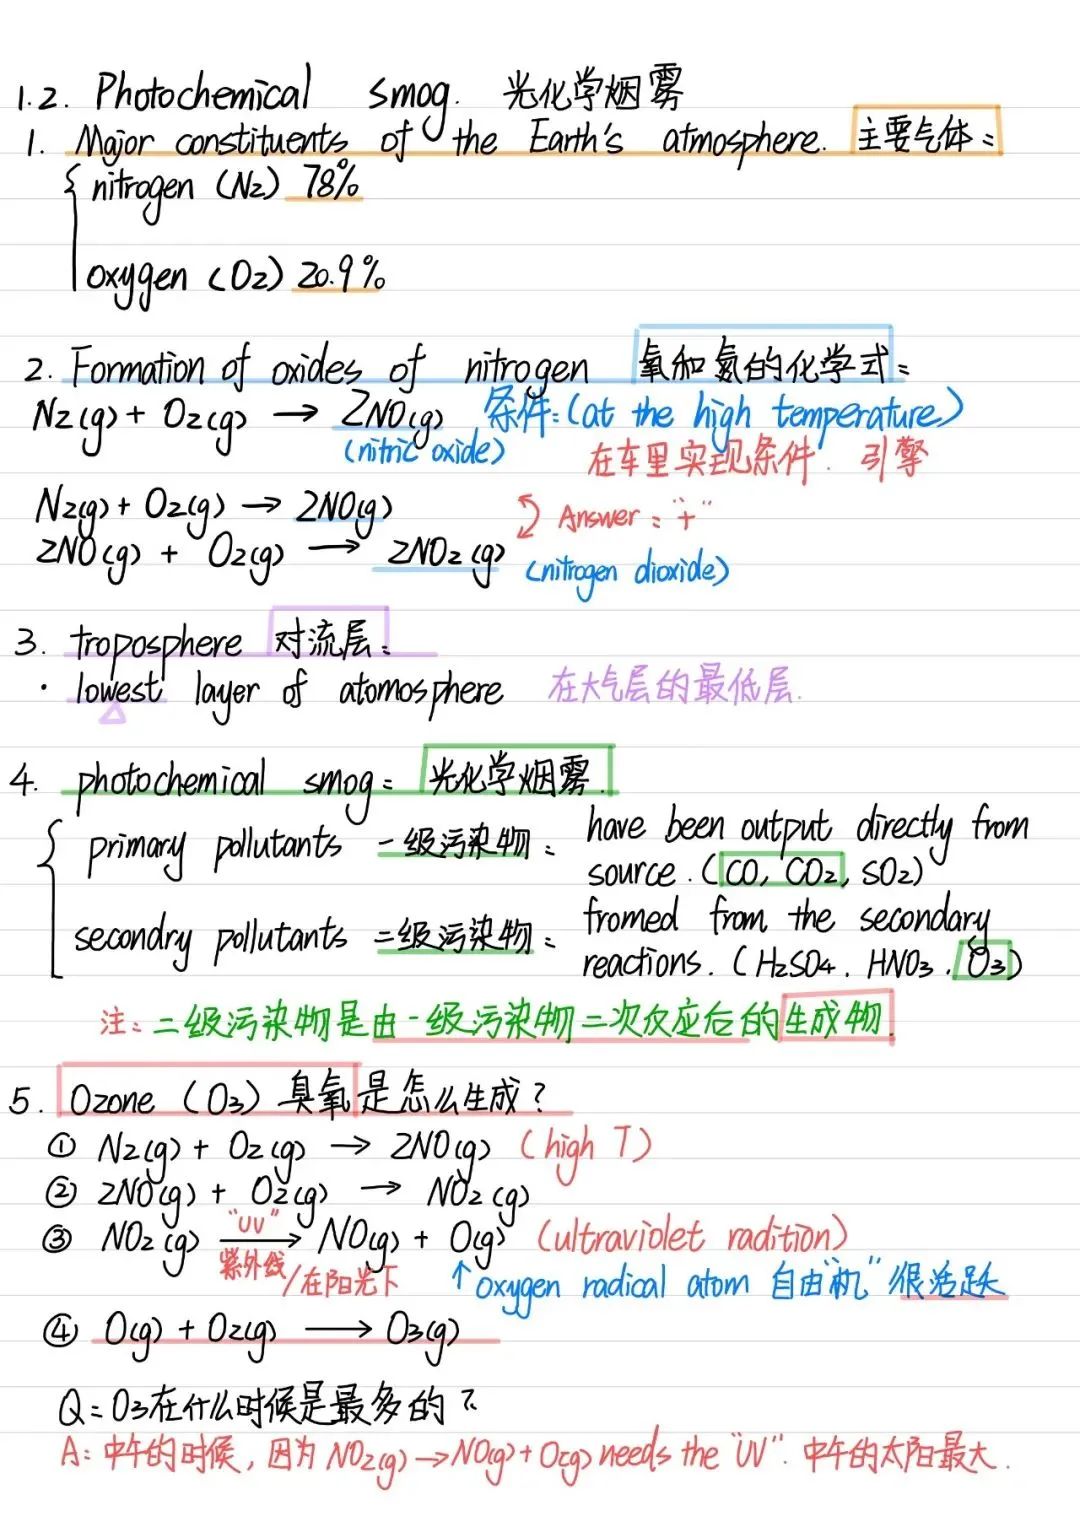 1.2. Photochemical smog. 光化学烟雾
1. Major constituents of the Earth's atmosphere. 主要气体:
nitrogen (N2) 78%
oxygen (O2) 20.9%
2. Formation of oxides of nitrogen 氧和氮的化学式:
N2(g) + O2(g) → 2NO(g) 条件:(at the high temperature)
(nitric oxide) 在车里实现条件. 引擎
N2(g) + O2(g) → 2NO(g) Answer: "+"
2NO(g) + O2(g) → 2NO2(g) (nitrogen dioxide)
3. troposphere 对流层:
· lowest layer of atomosphere 在大气层的最低层.
4. photochemical smog: 光化学烟雾.
primary pollutants 一级污染物: have been output directly from
source. (CO, CO2, SO2)
secondry pollutants 二级污染物: fromed from the secondary
reactions. (H2SO4, HNO3, O3)
注: 二级污染物是由一级污染物二次反应后的生成物.
5. Ozone (O3) 臭氧是怎么生成?
① N2(g) + O2(g) → 2NO(g) (high T)
② 2NO(g) + O2(g) → NO2(g)
③ NO2(g) "UV" → NO(g) + O(g) (ultraviolet radition)
紫外线/在阳光下 ↑ oxygen radical atom 自由"机" 很活跃
④ O(g) + O2(g) → O3(g)
Q: O3在什么时候是最多的?
A: 中午的时候, 因为 NO2(g) → NO(g) + O(g) needs the "UV". 中午的太阳最大.